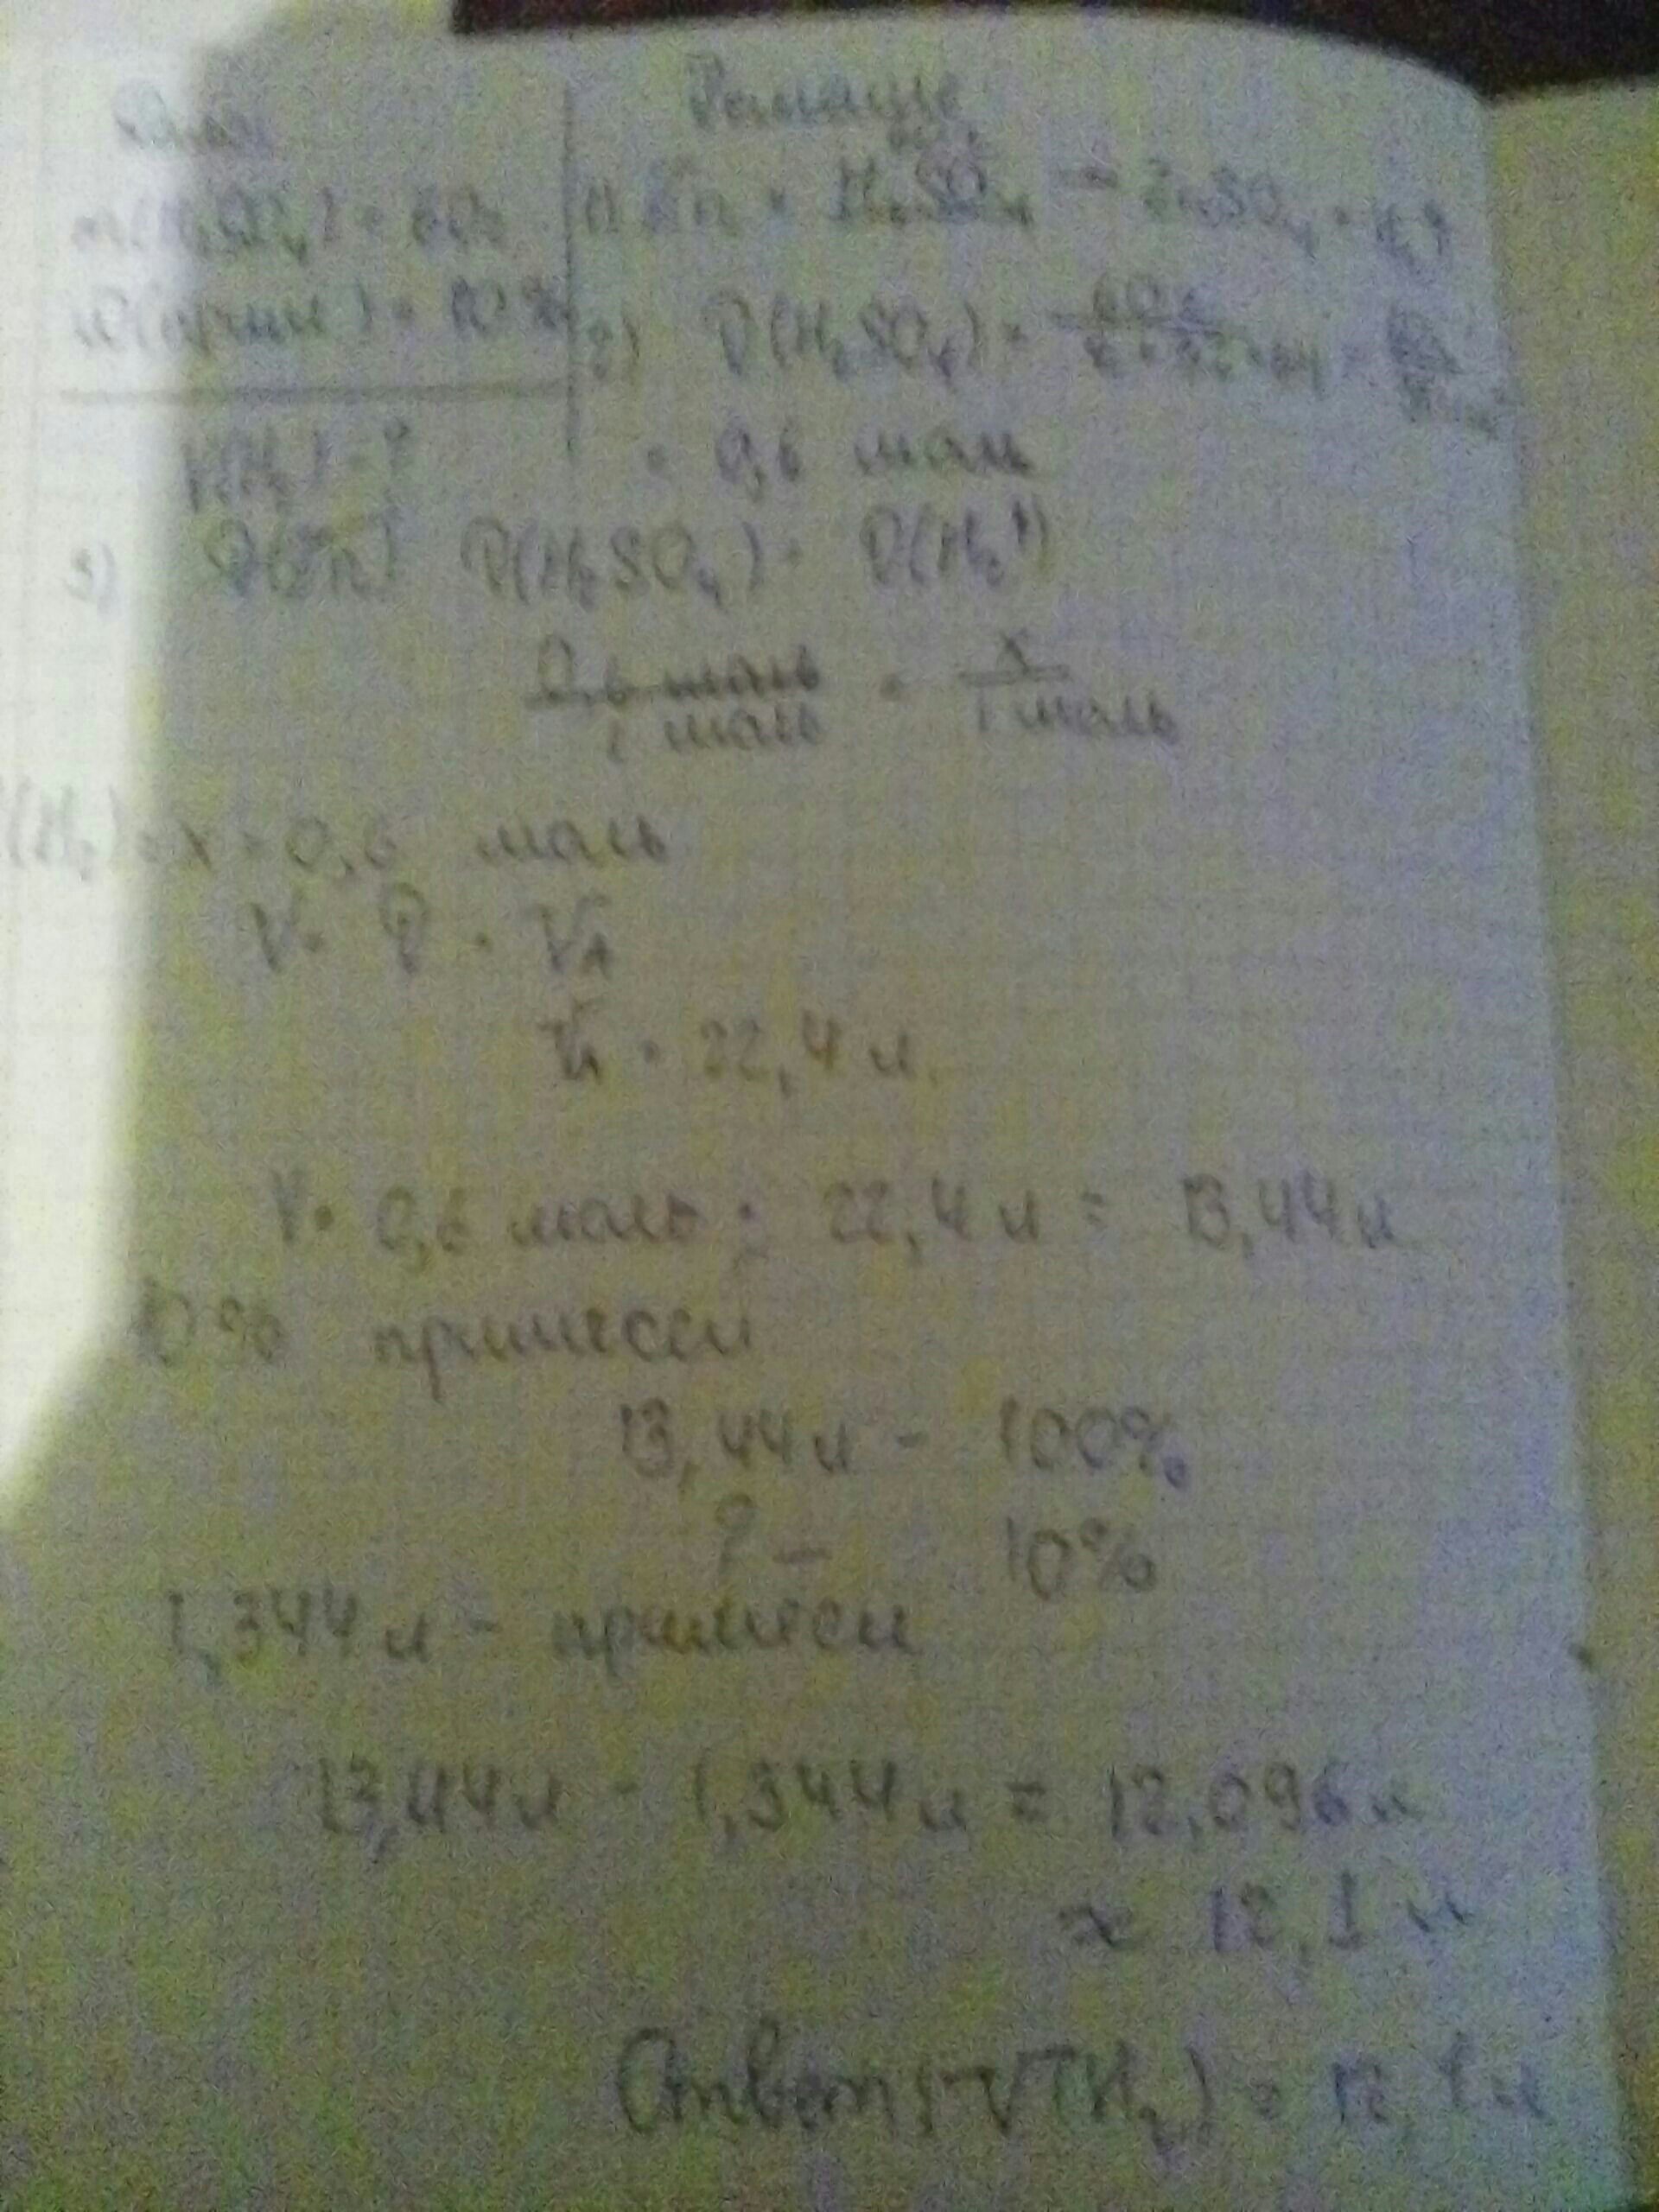 Дано Решение
m(H₂SO₄) = 60г 1) Zn + H₂SO₄ → ZnSO₄ + H₂↑
ω(прим) = 10% 2) ν(H₂SO₄) =
V(H₂) - ? = 0,6 моль
3) ν(Zn) ν(H₂SO₄) = ν(H₂↑)
0,6 моль / 1 моль = x / 1 моль
(H₂) = x = 0,6 моль
V = ν · Vₙ
Vₙ = 22,4 л.
V = 0,6 моль · 22,4 л = 13,44 л
10% примеси
13,44 л - 100%
? — 10%
1,344 л - примеси
13,44 л - 1,344 л = 12,096 л
≈ 12,1 л
Ответ: V(H₂) = 12,1 л